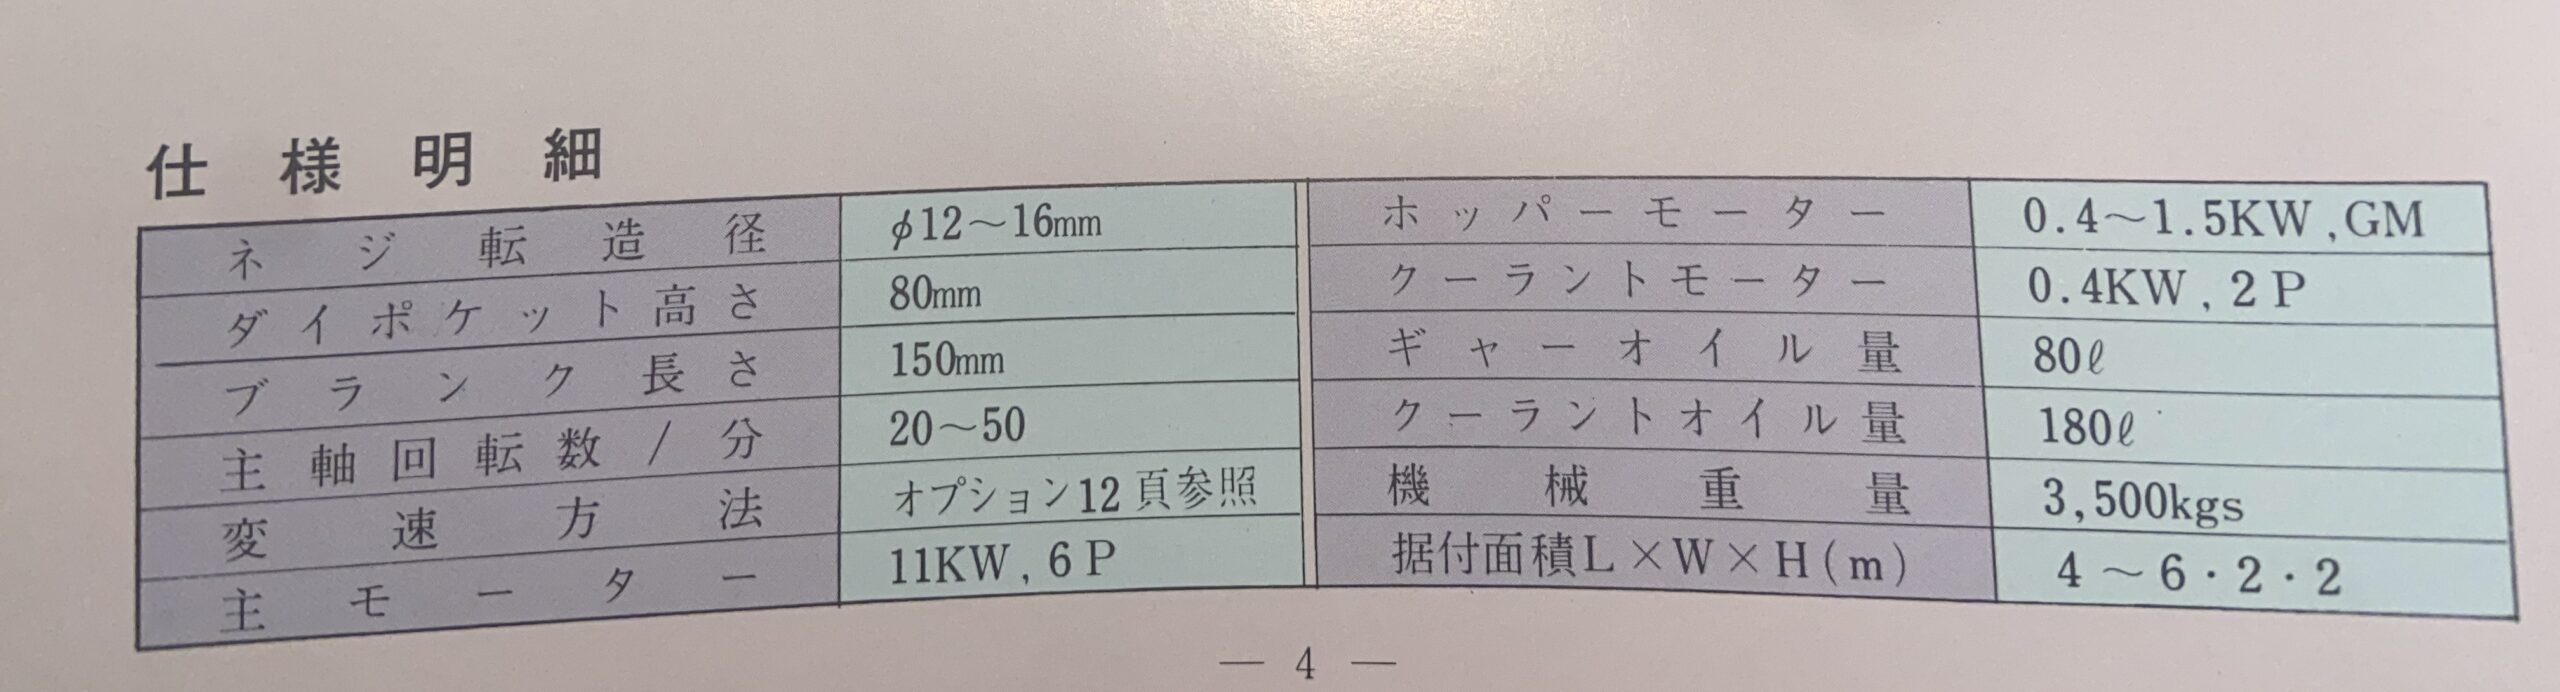 仕様明細
ネジ転造径 φ12〜16mm ホッパーモーター 0.4〜1.5KW,GM
ダイポケット高さ 80mm クーラントモーター 0.4KW,2P
ブランク長さ 150mm ギャーオイル量 80ℓ
主軸回転数/分 20〜50 クーラントオイル量 180ℓ
変速方法 オプション12頁参照 機械重量 3,500kgs
主モーター 11KW,6P 据付面積L×W×H(m) 4〜6・2・2
— 4 —